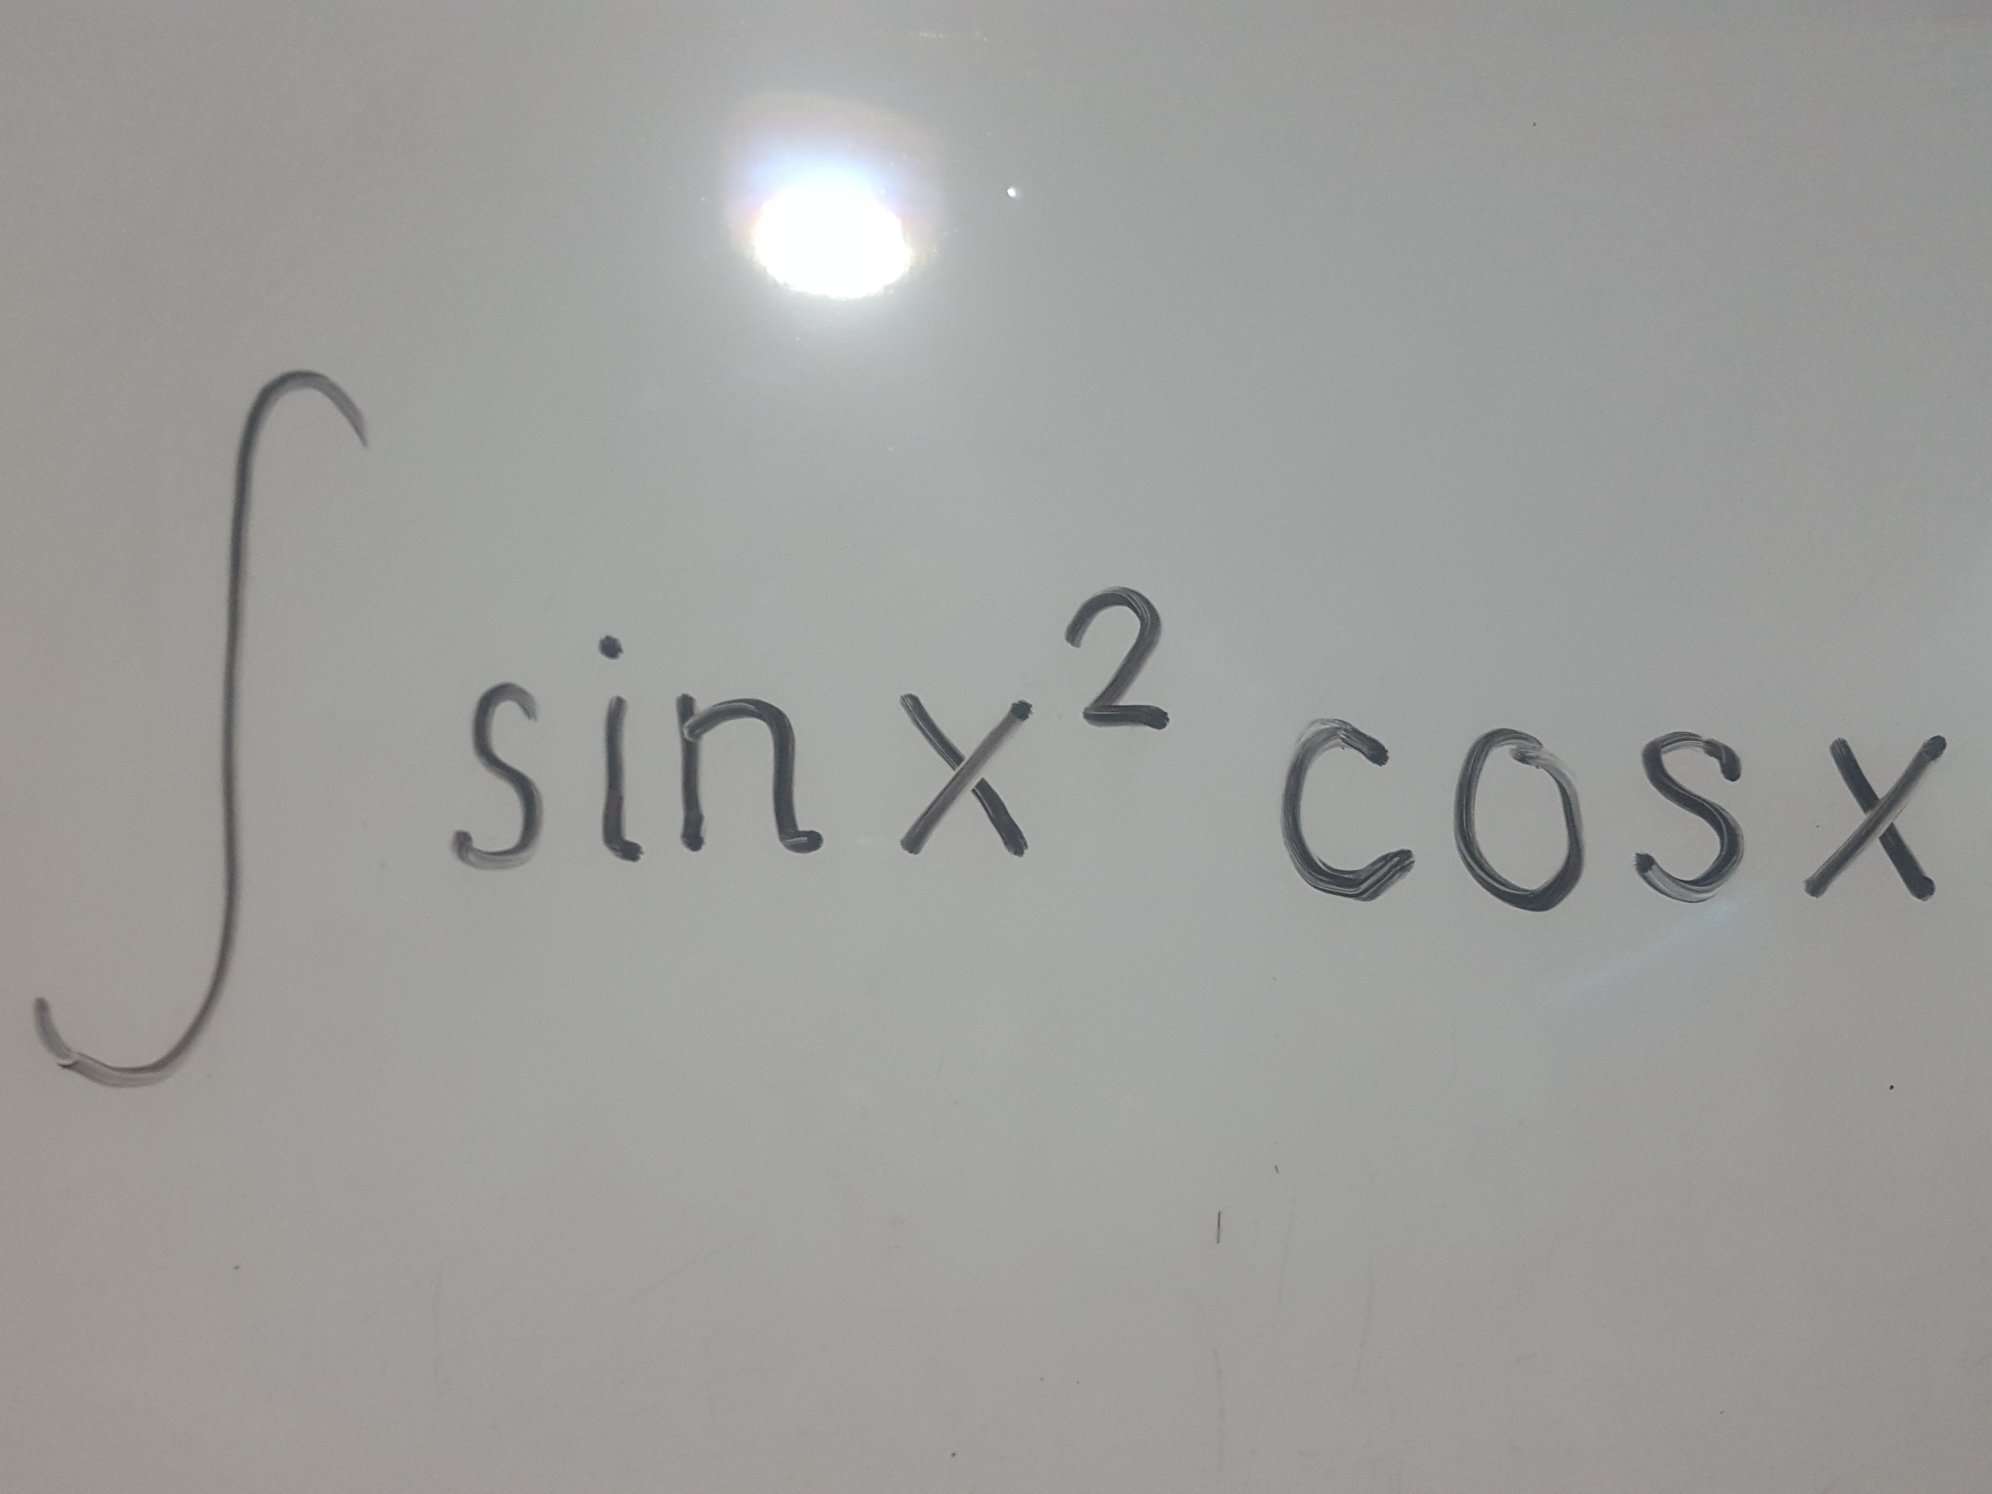 ∫ sin x² cos x